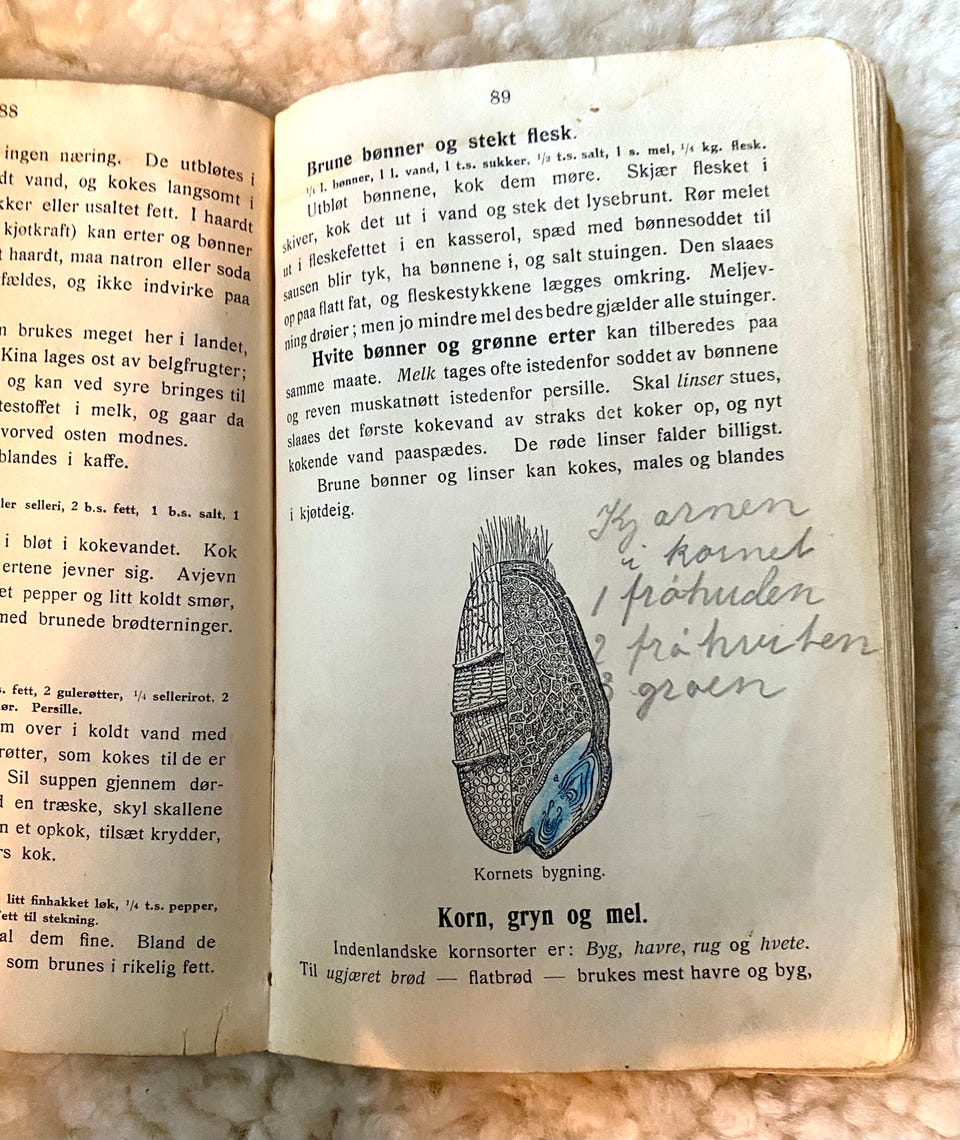 88
ingen næring. De utbløtes i
dt vand, og kokes langsomt i
kker eller usaltet fett. I haardt
kjøtkraft) kan erter og bønner
t haardt, maa natron eller soda
fældes, og ikke indvirke paa
n brukes meget her i landet,
Kina lages ost av belgfrugter;
og kan ved syre bringes til
testoffet i melk, og gaar da
vorved osten modnes.
blandes i kaffe.
ler selleri, 2 b.s. fett, 1 b.s. salt, 1
i bløt i kokevandet. Kok
ertene jevner sig. Avjevn
et pepper og litt koldt smør,
med brunede brødterninger.
s. fett, 2 gulerøtter, 1/4 sellerirot, 2
ør. Persille.
m over i koldt vand med
røtter, som kokes til de er
Sil suppen gjennem dør-
d en træske, skyl skallene
n et opkok, tilsæt krydder,
rs kok.
litt finhakket løk, 1/4 t.s. pepper,
fett til stekning.
al dem fine. Bland de
som brunes i rikelig fett.
89
Brune bønner og stekt flesk.
1/1 l. bønner, 1 l. vand, 1 t.s. sukker, 1/2 t.s. salt, 1 s. mel, 1/4 kg. flesk.
Utbløt bønnene, kok dem møre. Skjær flesket i
skiver, kok det ut i vand og stek det lysebrunt. Rør melet
ut i fleskefettet i en kasserol, spæd med bønnesoddet til
sausen blir tyk, ha bønnene i, og salt stuingen. Den slaaes
op paa flatt fat, og fleskestykkene lægges omkring. Meljev-
ning drøier; men jo mindre mel des bedre gjælder alle stuinger.
Hvite bønner og grønne erter kan tilberedes paa
samme maate. Melk tages ofte istedenfor soddet av bønnene
og reven muskatnøtt istedenfor persille. Skal linser stues,
slaaes det første kokevand av straks det koker op, og nyt
kokende vand paaspædes. De røde linser falder billigst.
Brune bønner og linser kan kokes, males og blandes
i kjøtdeig.
Kjærnen
i kornet
1 frøhuden
2 frøhviten
3 groen
a
Kornets bygning.
Korn, gryn og mel.
Indenlandske kornsorter er: Byg, havre, rug og hvete.
Til ugjæret brød — flatbrød — brukes mest havre og byg,